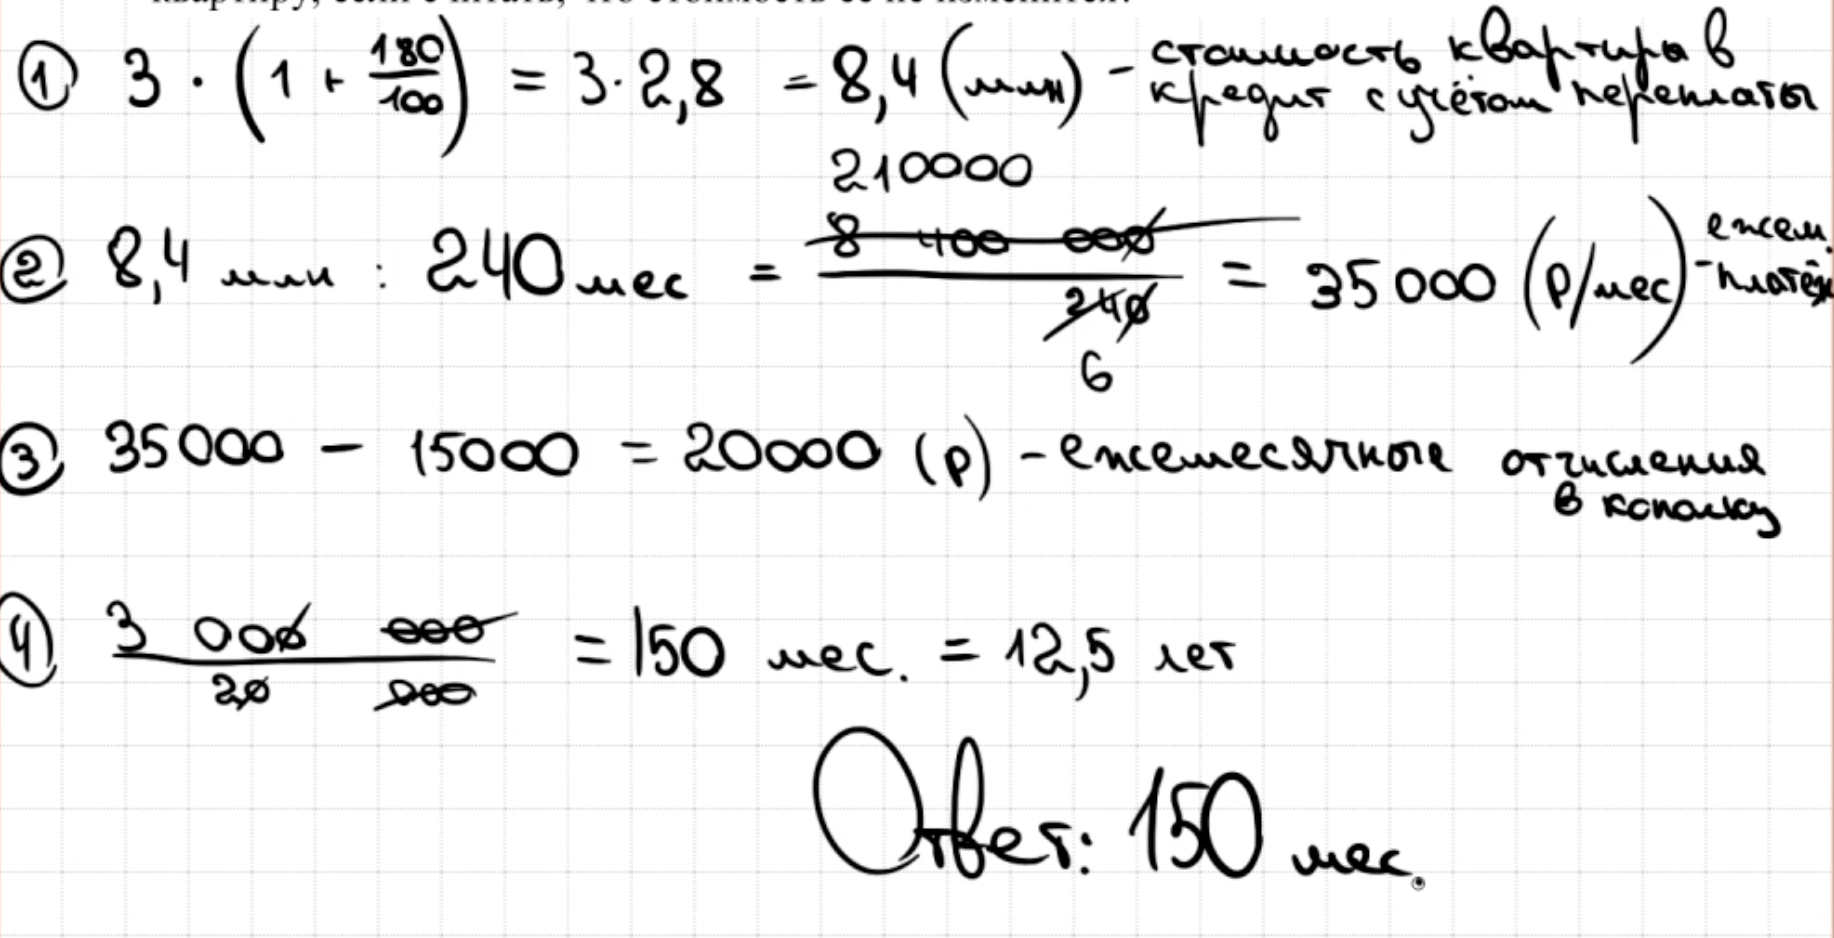 квартиру, если считать, что стоимость её не изменится.
① 3 · (1 + 180/100) = 3 · 2,8 = 8,4 (млн) - стоимость квартиры в
кредит с учётом переплаты
210000
② 8,4 млн : 240 мес = 8 400 000 / 240 = 35 000 (р/мес) - ежем.
платёж
6
③ 35 000 - 15000 = 20000 (р) - ежемесячные отчисления
в копилку
④ 3 000 000 / 20 000 = 150 мес. = 12,5 лет
Ответ: 150 мес.